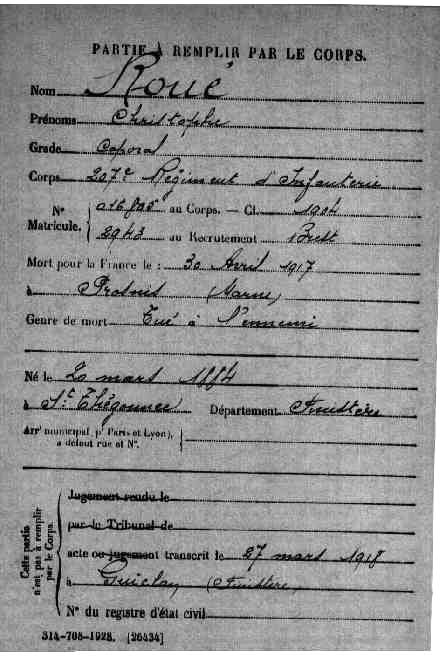 PARTIE À REMPLIR PAR LE CORPS.
Nom Roué
Prénoms Christophe
Grade Caporal
Corps 207e Régiment d'Infanterie
N° Matricule. 016895 au Corps. — Cl. 1904
2943 au Recrutement Brest
Mort pour la France le : 30 Avril 1917
à Prosnes (Marne)
Genre de mort Tué à l'ennemi
Né le 20 mars 1884
à St Thégonnec Département Finistère
Arrt municipal (pr Paris et Lyon),
à défaut rue et N°.
Cette partie n'est pas à remplir par le Corps.
Jugement rendu le
par le Tribunal de
acte ou jugement transcrit le 27 mars 1918
à Guiclan (Finistère)
N° du registre d'état civil
314-708-1928. [26434]